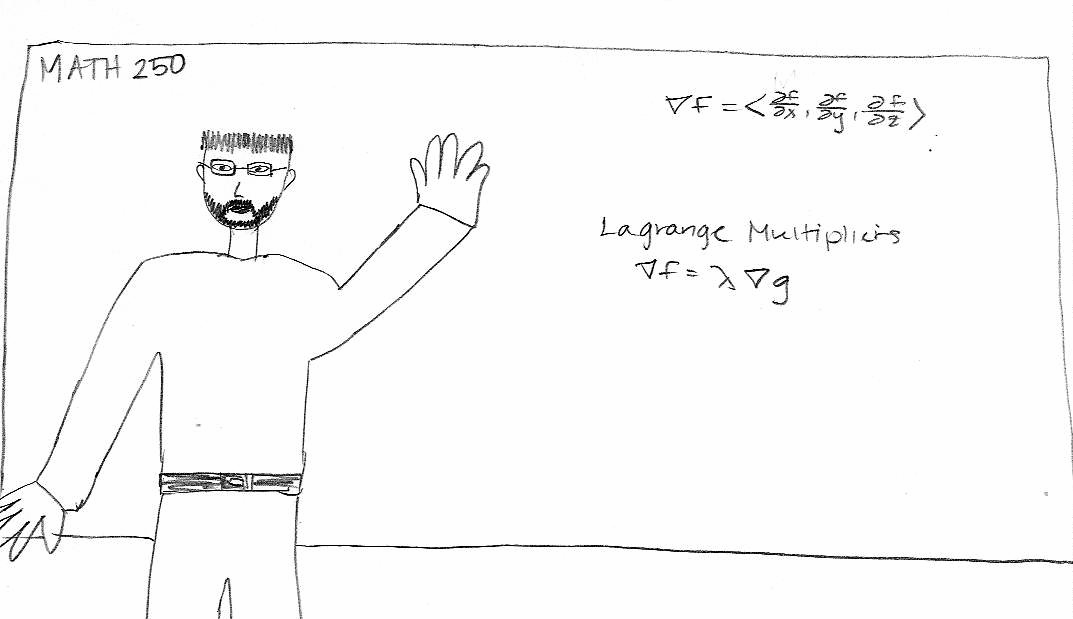 MATH 250
∇f = <∂f/∂x, ∂f/∂y, ∂f/∂z>
Lagrange Multipliers
∇f = λ ∇g